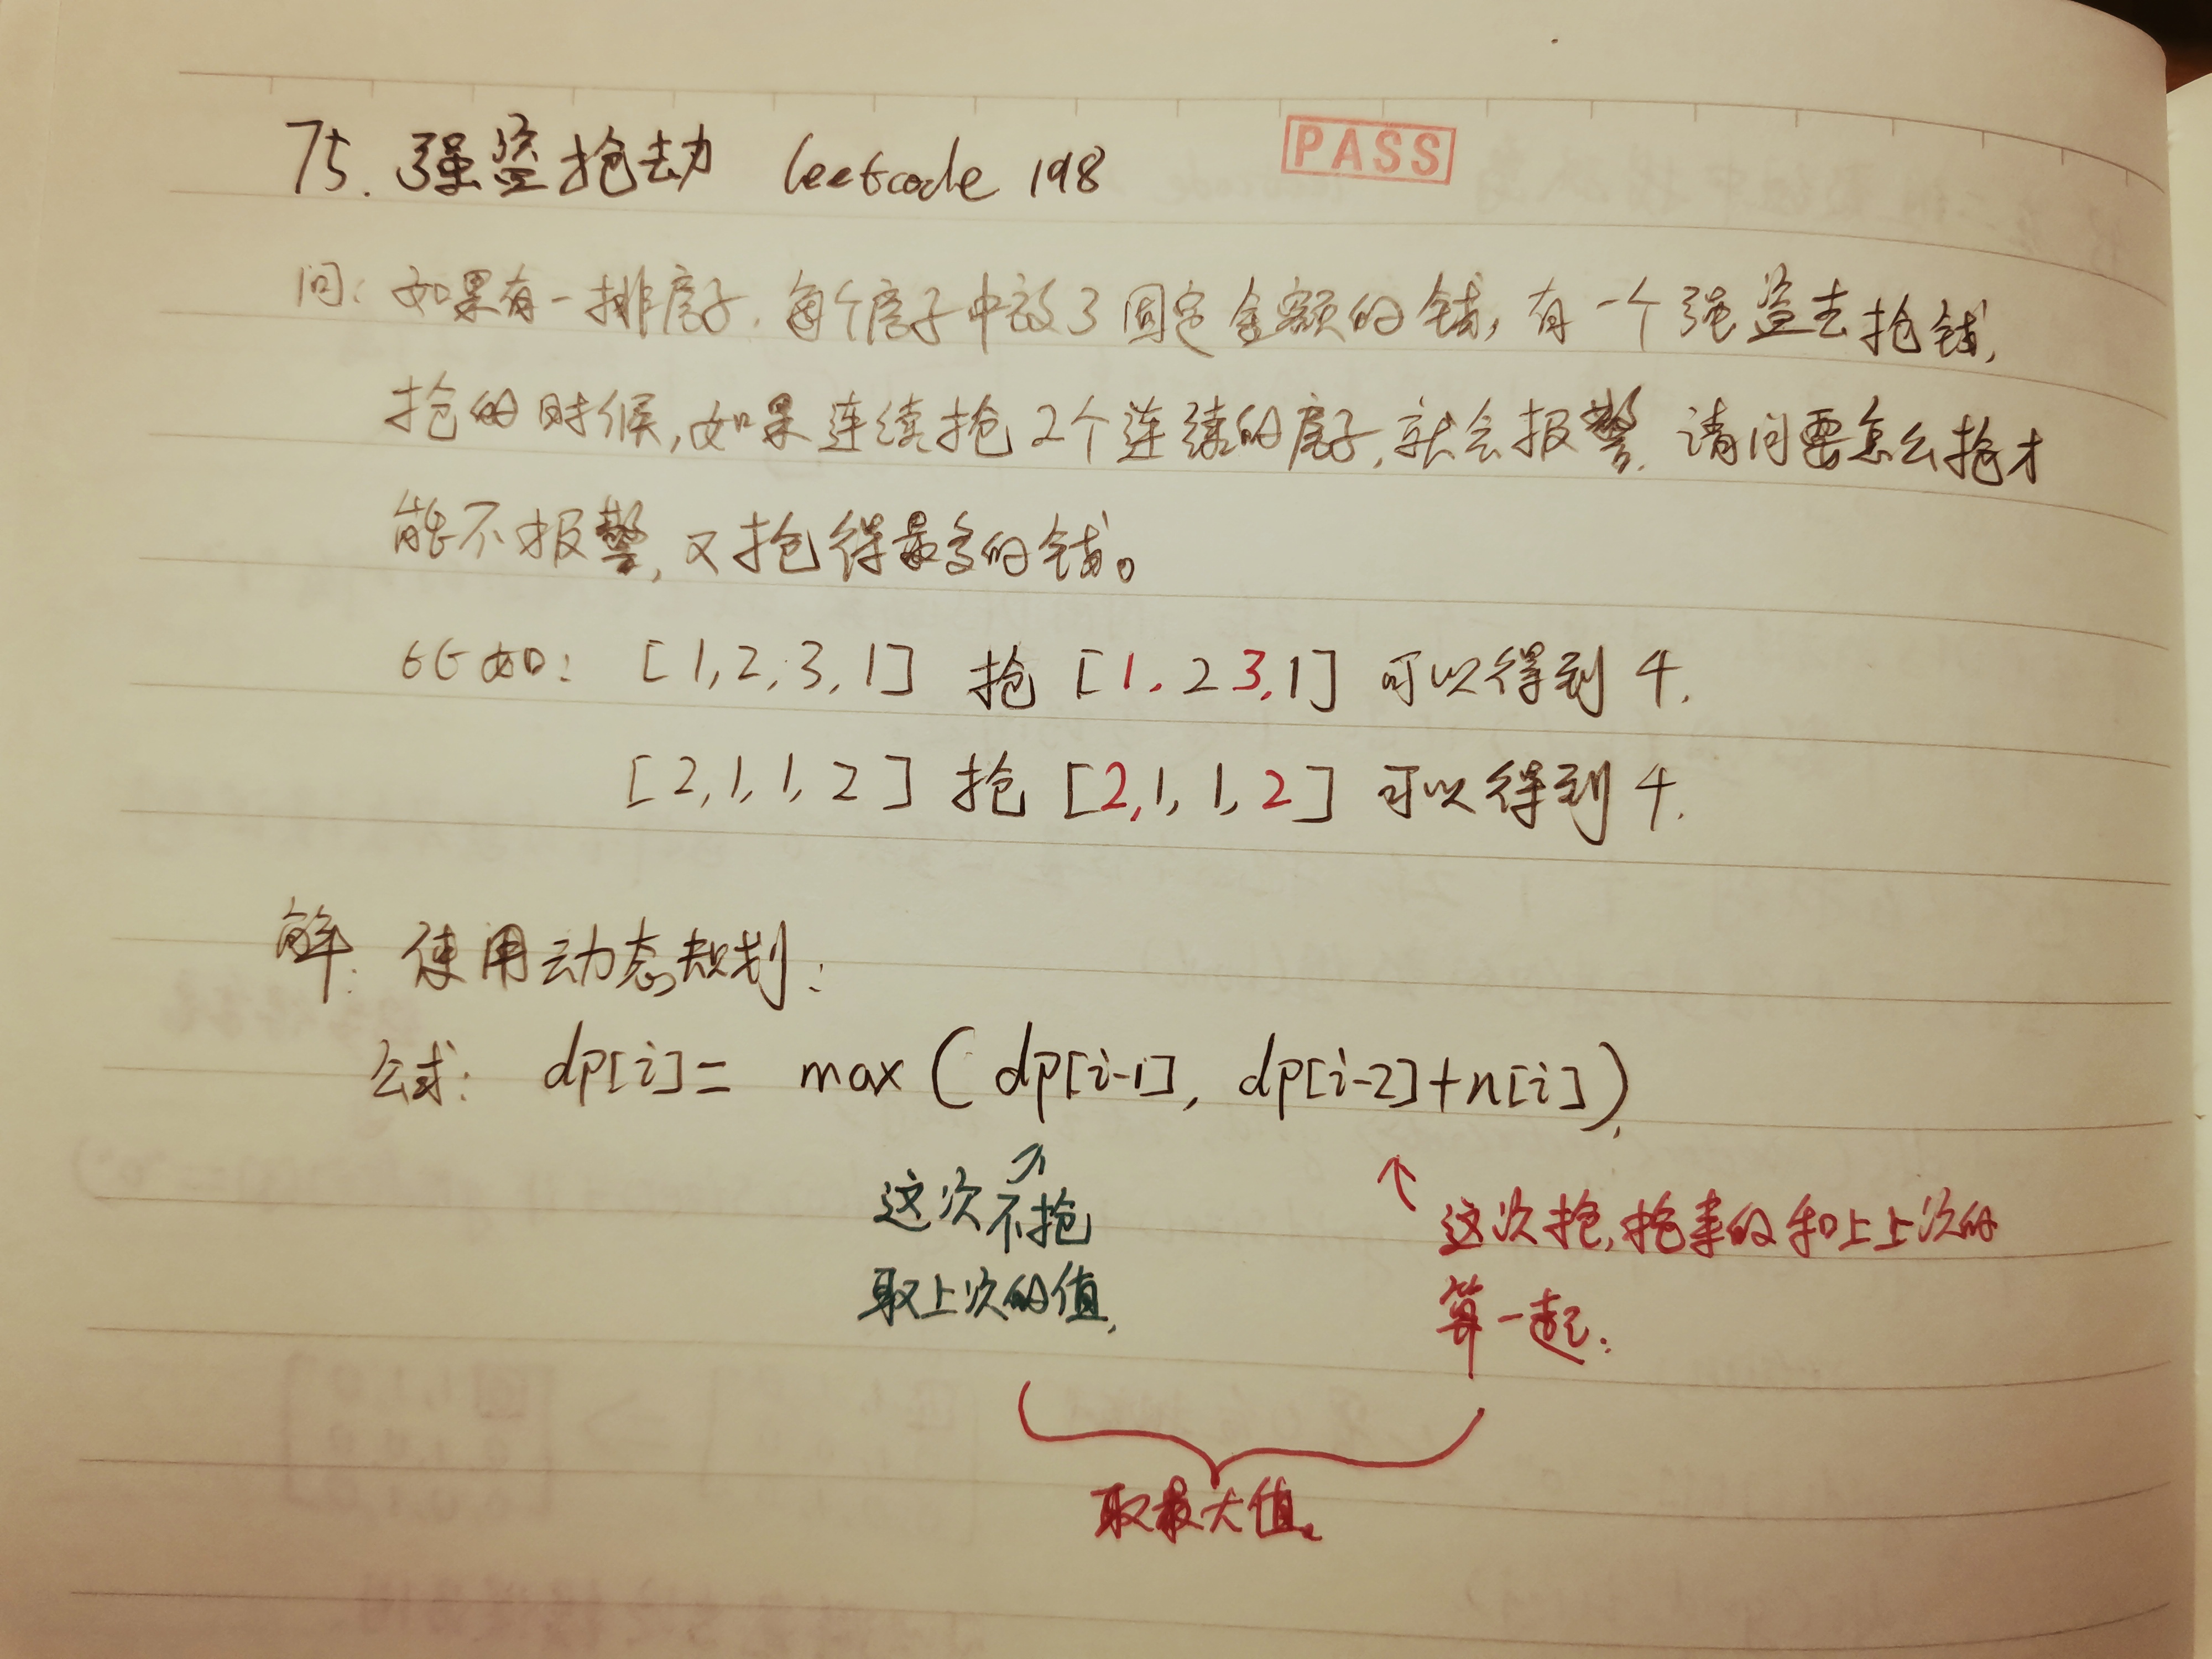 75. 强盗抢劫 leetcode 198
PASS
问: 如果有一排房子, 每个房子中放了固定金额的钱, 有一个强盗去抢钱,
抢的时候, 如果连续抢2个连续的房子, 就会报警. 请问要怎么抢才
能不报警, 又抢得最多的钱。
比如: [1,2,3,1] 抢 [1,2 3,1] 可以得到 4.
[2,1,1,2] 抢 [2,1,1,2] 可以得到 4.
解: 使用动态规划:
公式: dp[i]= max ( dp[i-1], dp[i-2]+n[i]).
这次不抢
取上次的值,
↑ 这次抢, 抢来的和上上次的
算一起.
取最大值.